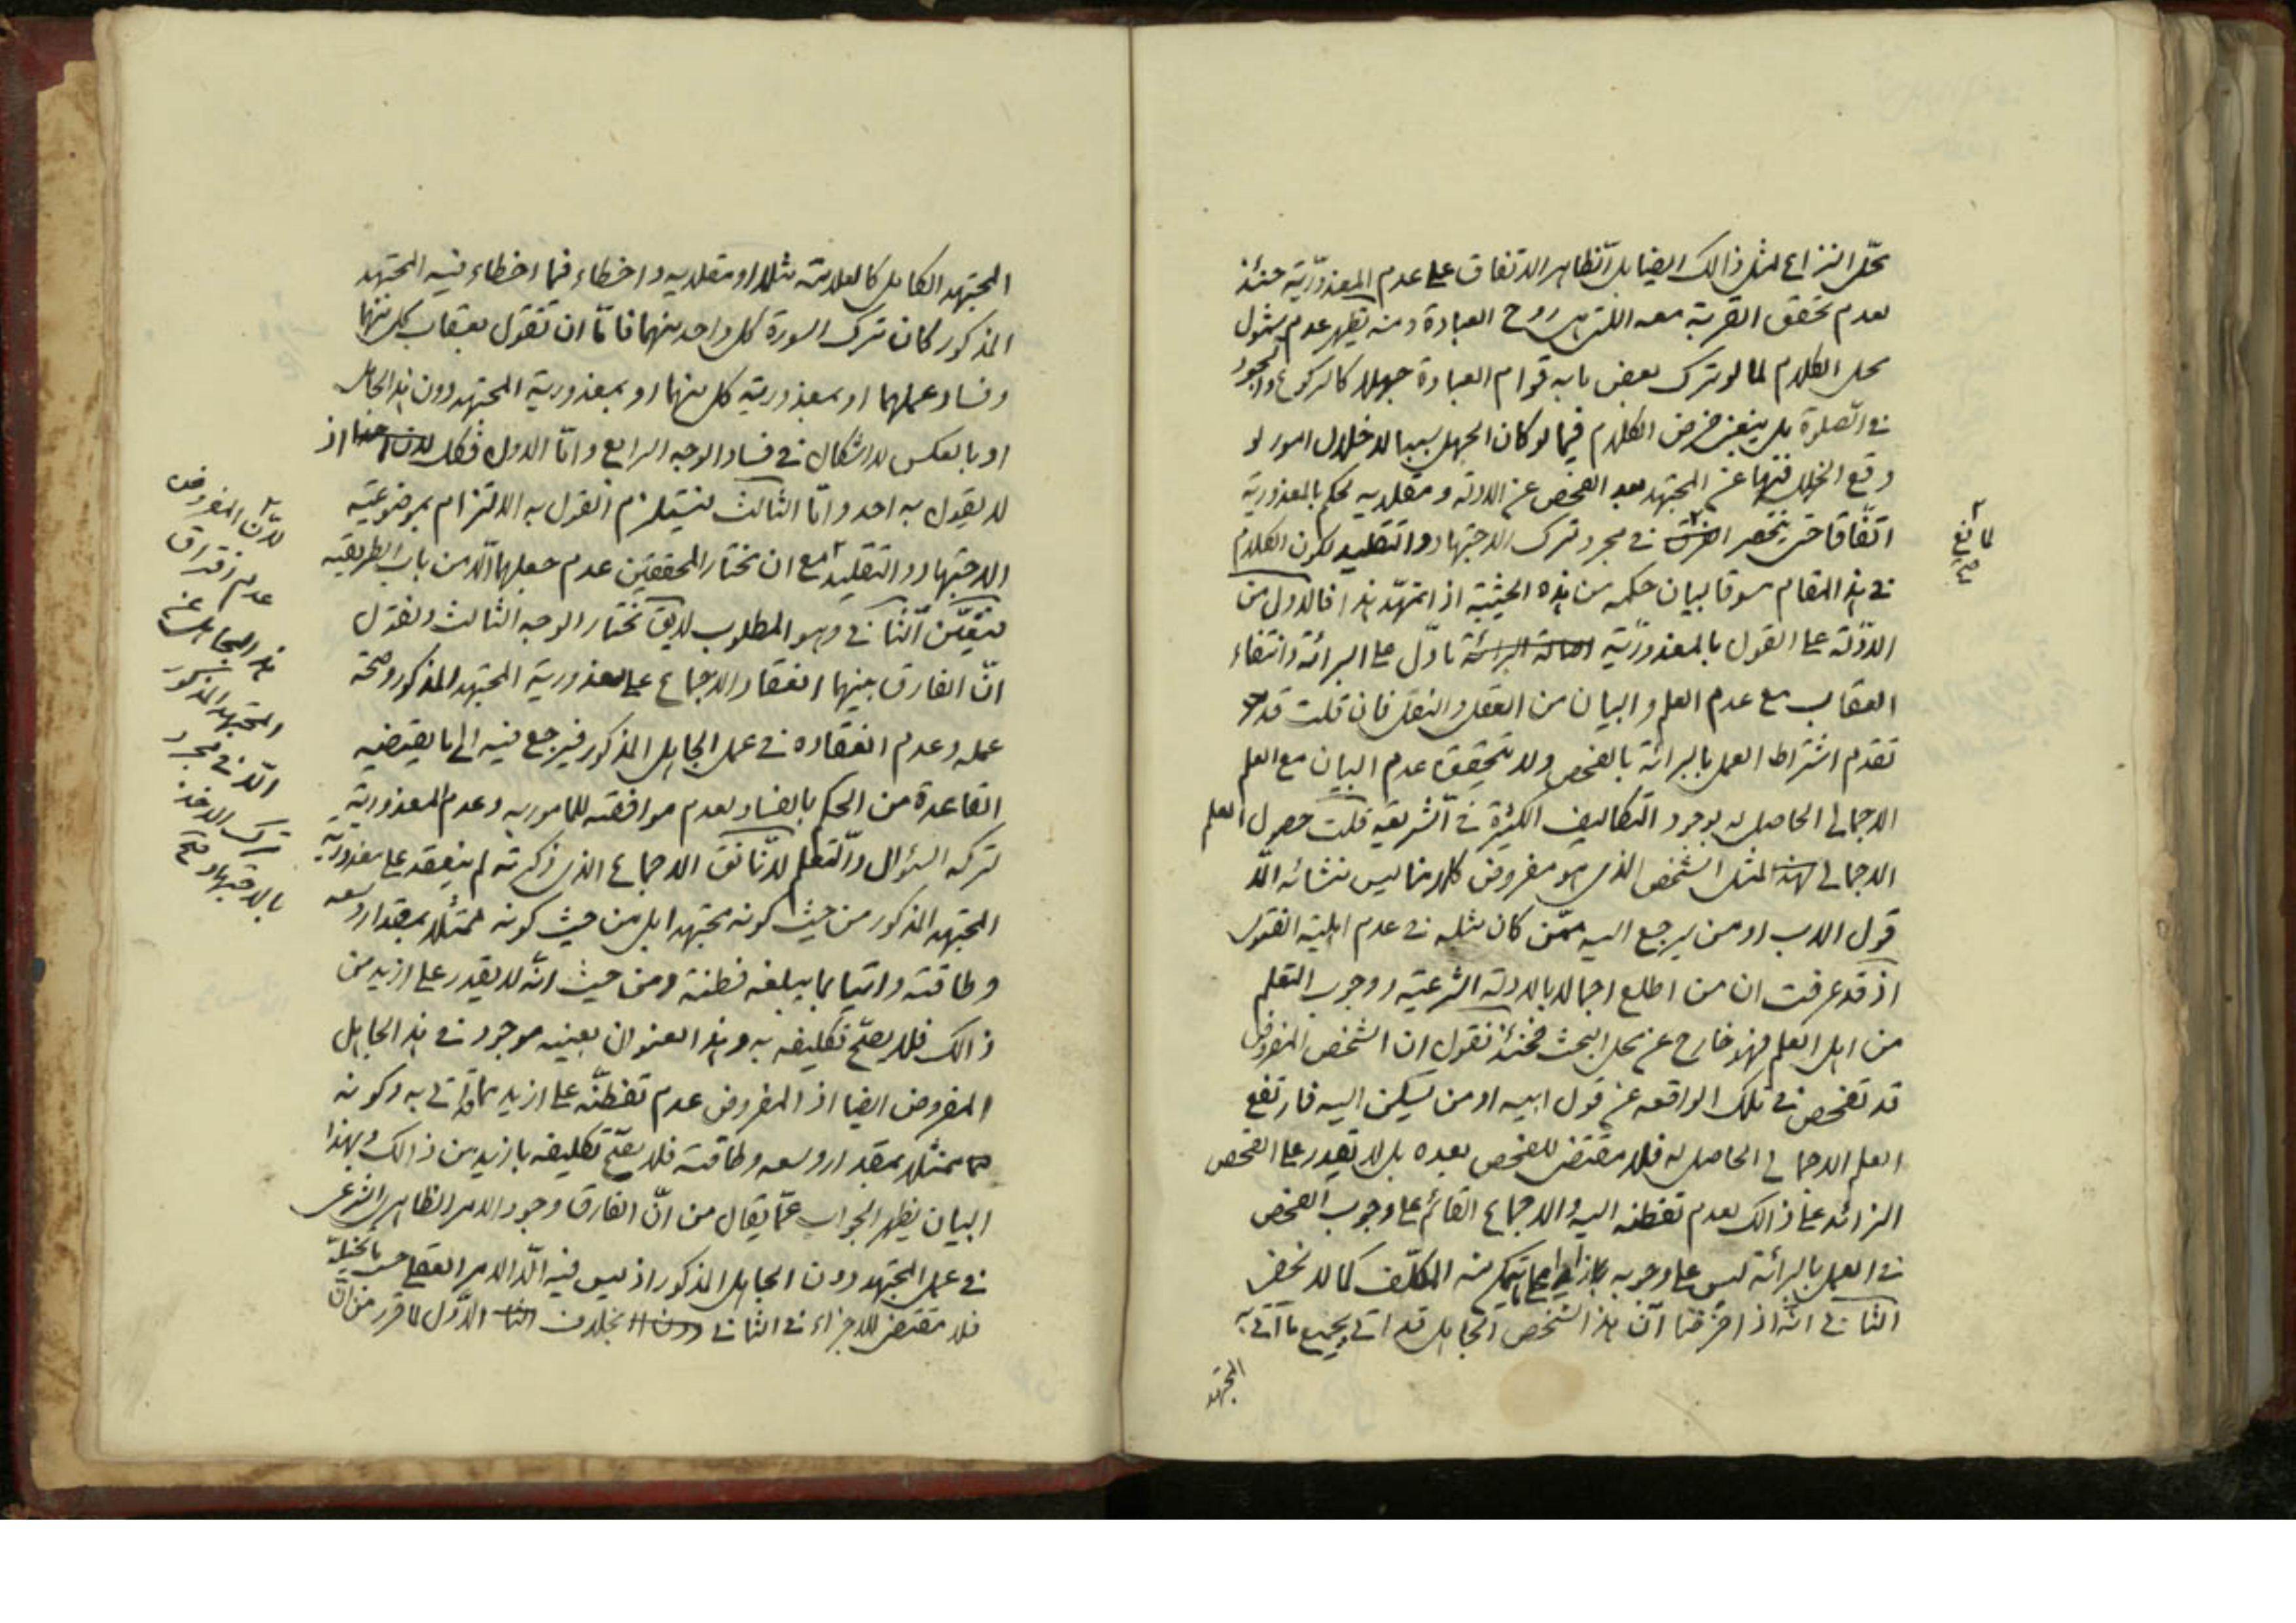 محلّ النزاع لمثل ذالك ايضا بل الظاهر الاتفاق على عدم المعذوريّة حنئذ
لعدم تحقق القربة معه اللتى هى روح العبادة و منه يظهر عدم شمول
محل الكلام لما لو ترك بعض ما به قوام العبادة جهلا كالركوع و السجود
فى الصلوة بل ينبغى فرض الكلام فيما لو كان الجهل سببا لاخلال امور لو
وقع الخلل فيها عن المجتهد بعد الفحص عن الادلة و مقلديه لحكم بالمعذورية
اتفاقا حتى ينحصر الفرق فى مجرد ترك الاجتهاد و التقليد لكون الكلام
فى هذا المقام مسوقا لبيان حكمه من هذه الحيثية اذا تمهّد هذا فالاول من
الادلّة على القول بالمعذوريّة اصالة البرائة ما دلّ على البرائة و انتفاء
العقاب مع عدم العلم و البيان من العقل و النقل فان قلت قد
تقدم اشتراط العمل بالبرائة بالفحص و لا يتحقق عدم البيان مع العلم
الاجمالى الحاصل له بوجود التكاليف الكثيرة فى الشريعة قلت حصول العلم
الاجمالى لهذا لمثل الشخص الذى هو مفروض كلامنا ليس منشائه الّا
قول الاب او من يرجع اليه ممّن كان مثله فى عدم اهلية القبول
اذ قد عرفت ان من اطلع اجمالا بالادلة الشرعية و وجوب التعلم
من اهل العلم فهو خارج عن محل البحث فحنئذ نقول ان الشخص المفروض
قد تفحص فى تلك الواقعه عن قول ابيه او من يسكن اليه فارتفع
العلم الاجمالى الحاصل له فلا مقتضى للفحص بعده بل لا يقدر على الفحص
الزائد على ذالك لعدم تفطنه اليه و الاجماع القائم على وجوب الفحص
فى العمل بالبرائة ليس على وجوبه بازيد مما يتمكن منه المكلّف كما لا يخفى
الثانى انه اذا فرضنا انّ هذا الشخص الجاهل قد اتى بجميع ما اتى به
المجتهد
المجتهد الكامل كالعلامة مثلا او مقلديه و اخطاء فيما اخطاء فيه المجتهد
المذكور كان ترك السورة كل واحد منهما فامّا ان تقول بعقاب كل منهما
و فساد عملهما او بمعذورية كل منهما او بمعذورية المجتهد دون هذا الجاهل
او بالعكس لا اشكال فى فساد الوجه الرابع و امّا الاول فكك اذ
لا يقول به احد و امّا الثالث فيستلزم القول به الالتزام بموضوعيّة
الاجتهاد و التقليد مع ان مختار المحققين عدم جعلهما الّا من باب الطريقيه
فيتعيّن الثانى و هو المطلوب لا يق نختار الوجه الثالث و نقول
انّ الفارق بينهما انعقاد الاجماع على معذورية المجتهد المذكور و صحة
عمله و عدم انعقاده فى عمل الجاهل المذكور فيرجع فيه الى ما يقتضيه
القاعدة من الحكم بالفساد لعدم موافقته للمامور به و عدم المعذورية
لتركه السؤال و التعلم لانّا نق الاجماع الذى ذكرته لم ينعقد على معذوريّة
المجتهد المذكور من حيث كونه مجتهدا بل من حيث كونه ممتثلا بمقدار وسعه
و طاقته و اتيا بما يبلغه فطنة و من حيث انّه لا يقدر على ازيد من
ذالك فلا يصحّ تكليفه به و هذا العنوان بعينه موجود فى هذا الجاهل
المفروض ايضا اذ المفروض عدم تفطنّه على ازيد مما اتى به و كونه
ممتثلا بمقدار وسعه و طاقته فلا يصحّ تكليفه بازيد من ذالك و بهذا
البيان يظهر الجواب عمّا يقال من انّ الفارق وجود الامر الظاهرى الشرعى
فى عمل المجتهد دون الجاهل المذكور اذ ليس فيه الّا الامر العقلى
فلا مقتضى للاجزاء فى الثانى بخلاف الاوّل لما قرر من انّ
لانّ المفروض
عدم افتراق
هذا الجاهل عن
المجتهد المذكور
الّا فى مجرد
ترك الاخذ
بالاجتهاد صح